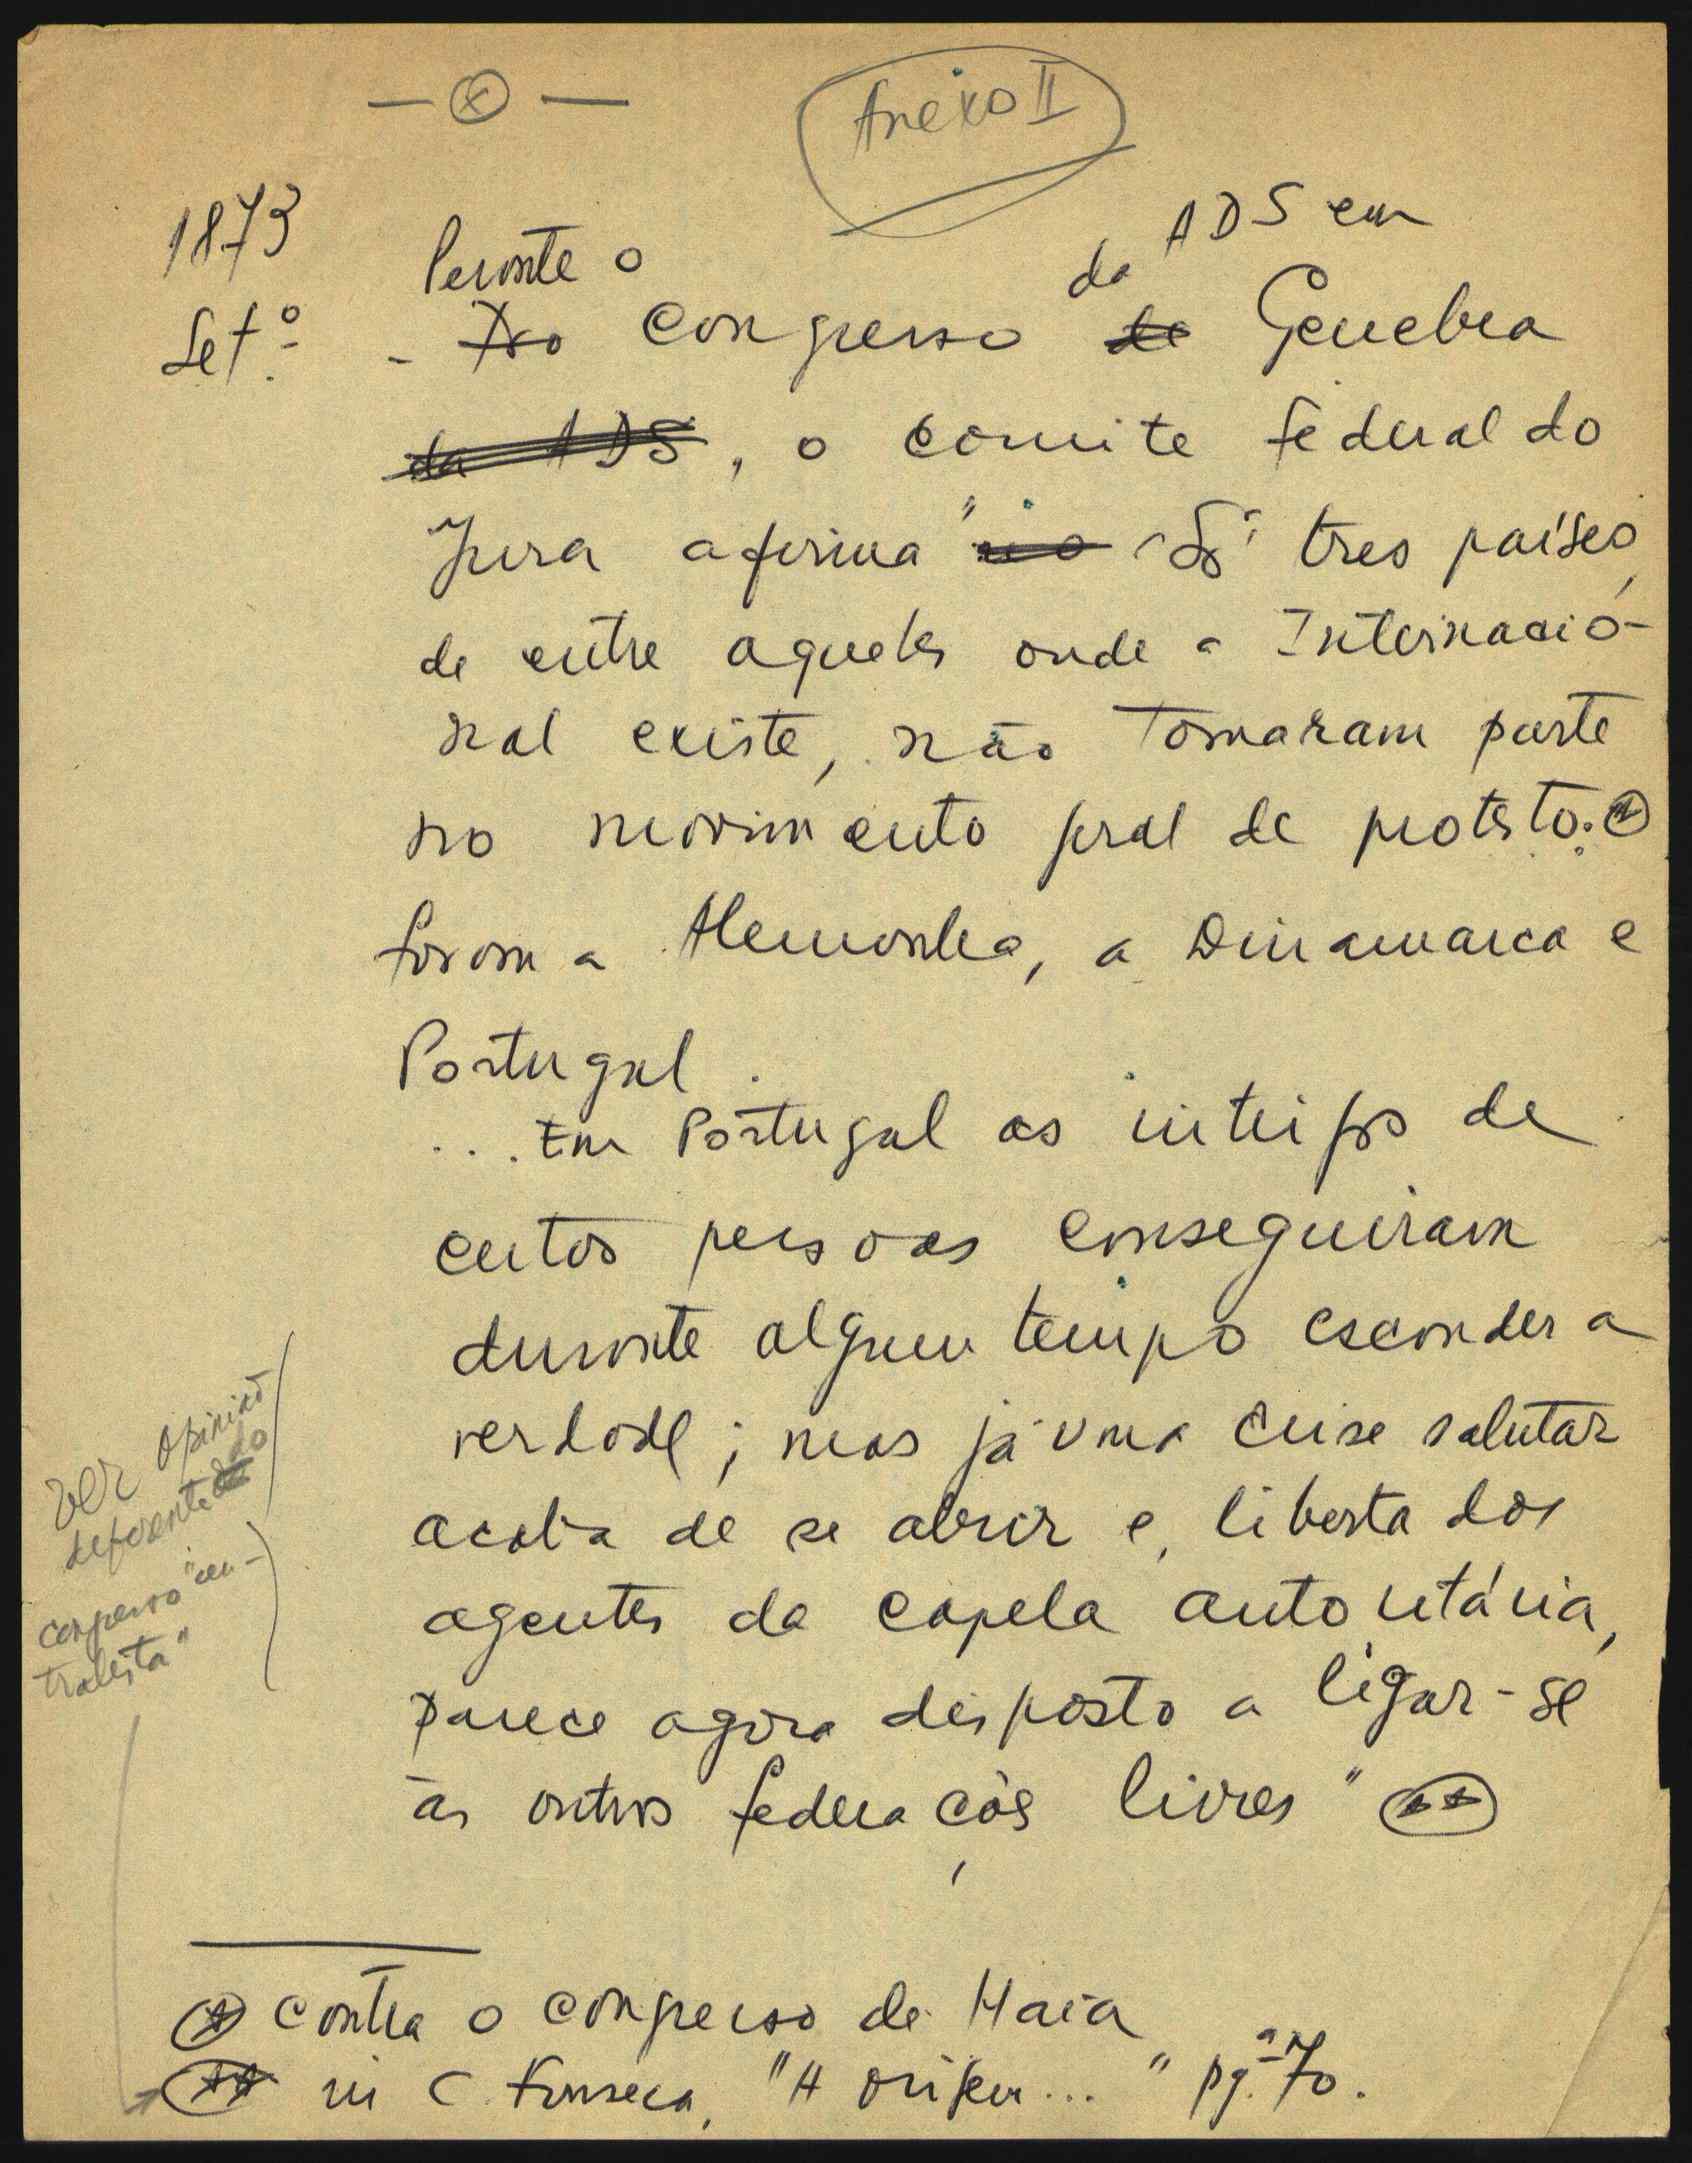 — ⊗ —
Anexo II
1873
Setº
Perante o
da ADS em
- No Congresso de Genebra
da ADS, o comite federal do
Jura afirma "Só tres países,
de entre aqueles onde a Internacio-
nal existe, não tomaram parte
no movimento geral de protesto. *
foram a Alemanha, a Dinamarca e
Portugal.
... Em Portugal as intrigas de
certas pessoas conseguiram
durante algum tempo esconder a
verdade; mas já uma crise salutar
acaba de se abrir e, liberta dos
agentes da capela autoritária,
parece agora disposto a ligar-se
às outras federações livres" **
ver opinião
deferente do
congresso "cen-
tralista"
* Contra o congresso de Haia
** in C. Fonseca, "A origem ..." pg.ª 70.